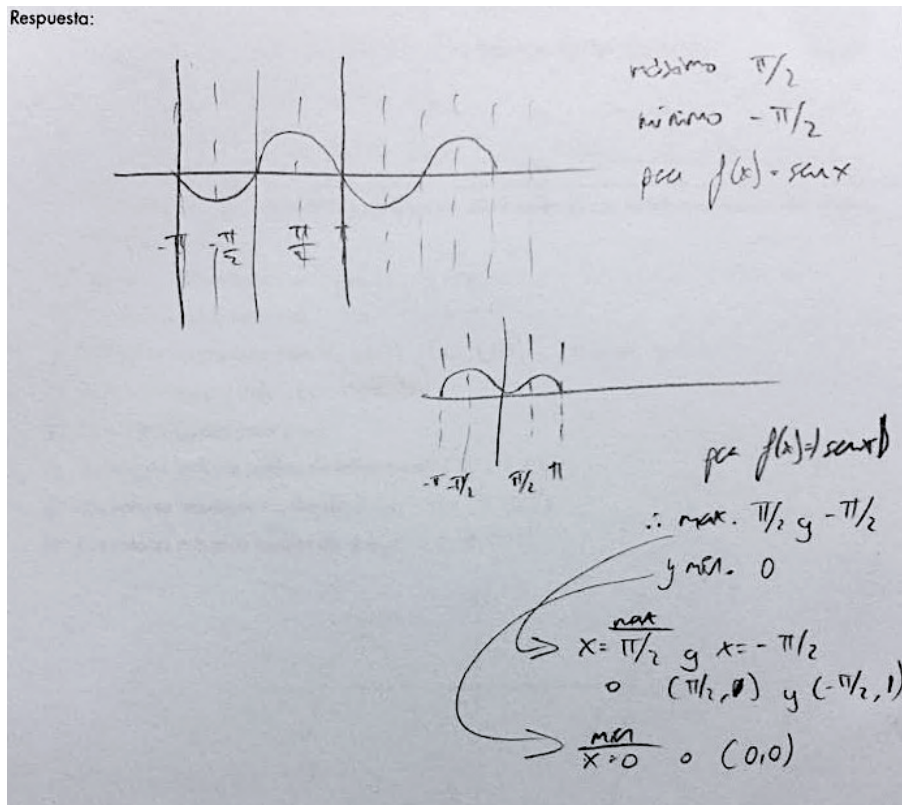 Respuesta:
máximo π/2
mínimo - π/2
para f(x) = senx
-π -π/2 π/2 π
-π -π/2 π/2 π
para f(x)=|senx|
∴ max. π/2 y -π/2
y min. 0
max
x = π/2 y x = - π/2
o (π/2, 1) y (-π/2, 1)
min
x=0 o (0,0)